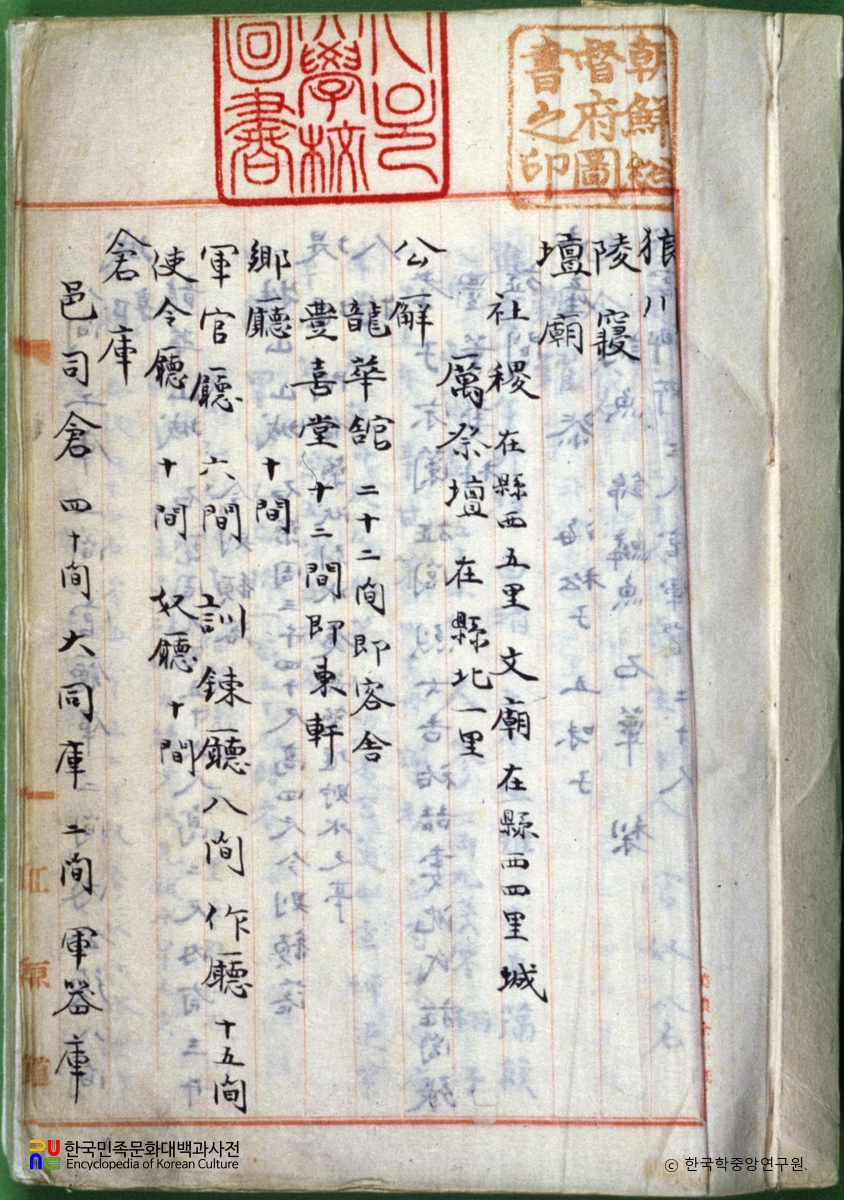 朝鮮総
督府圖
書之印
學校
圖書
狼川
陵寢
壇廟
社稷 在縣西五里 文廟 在縣西四里 城
厲祭壇 在縣北一里
公廨
龍華舘 二十二間即客舍
豊喜堂 十三間即東軒
鄉廳 十間
軍官廳 六間 訓鍊廳 八間 作廳 十五間
使令廳 十間 奴廳 十間
倉庫
邑司倉 四十間 大同庫 二間 軍器庫
한국민족문화대백과사전
Encyclopedia of Korean Culture
© 한국학중앙연구원.